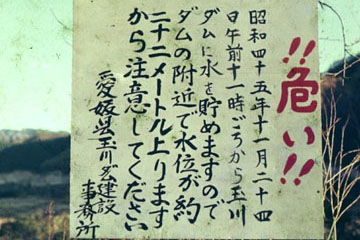 !!危い!!
昭和四十五年十一月二十四
日午前十一時ごろから玉川
ダムに水を貯めますので
ダムの附近で水位が約
二十二メートル上ります
から注意してください
愛媛県玉川ダム建設
事務所